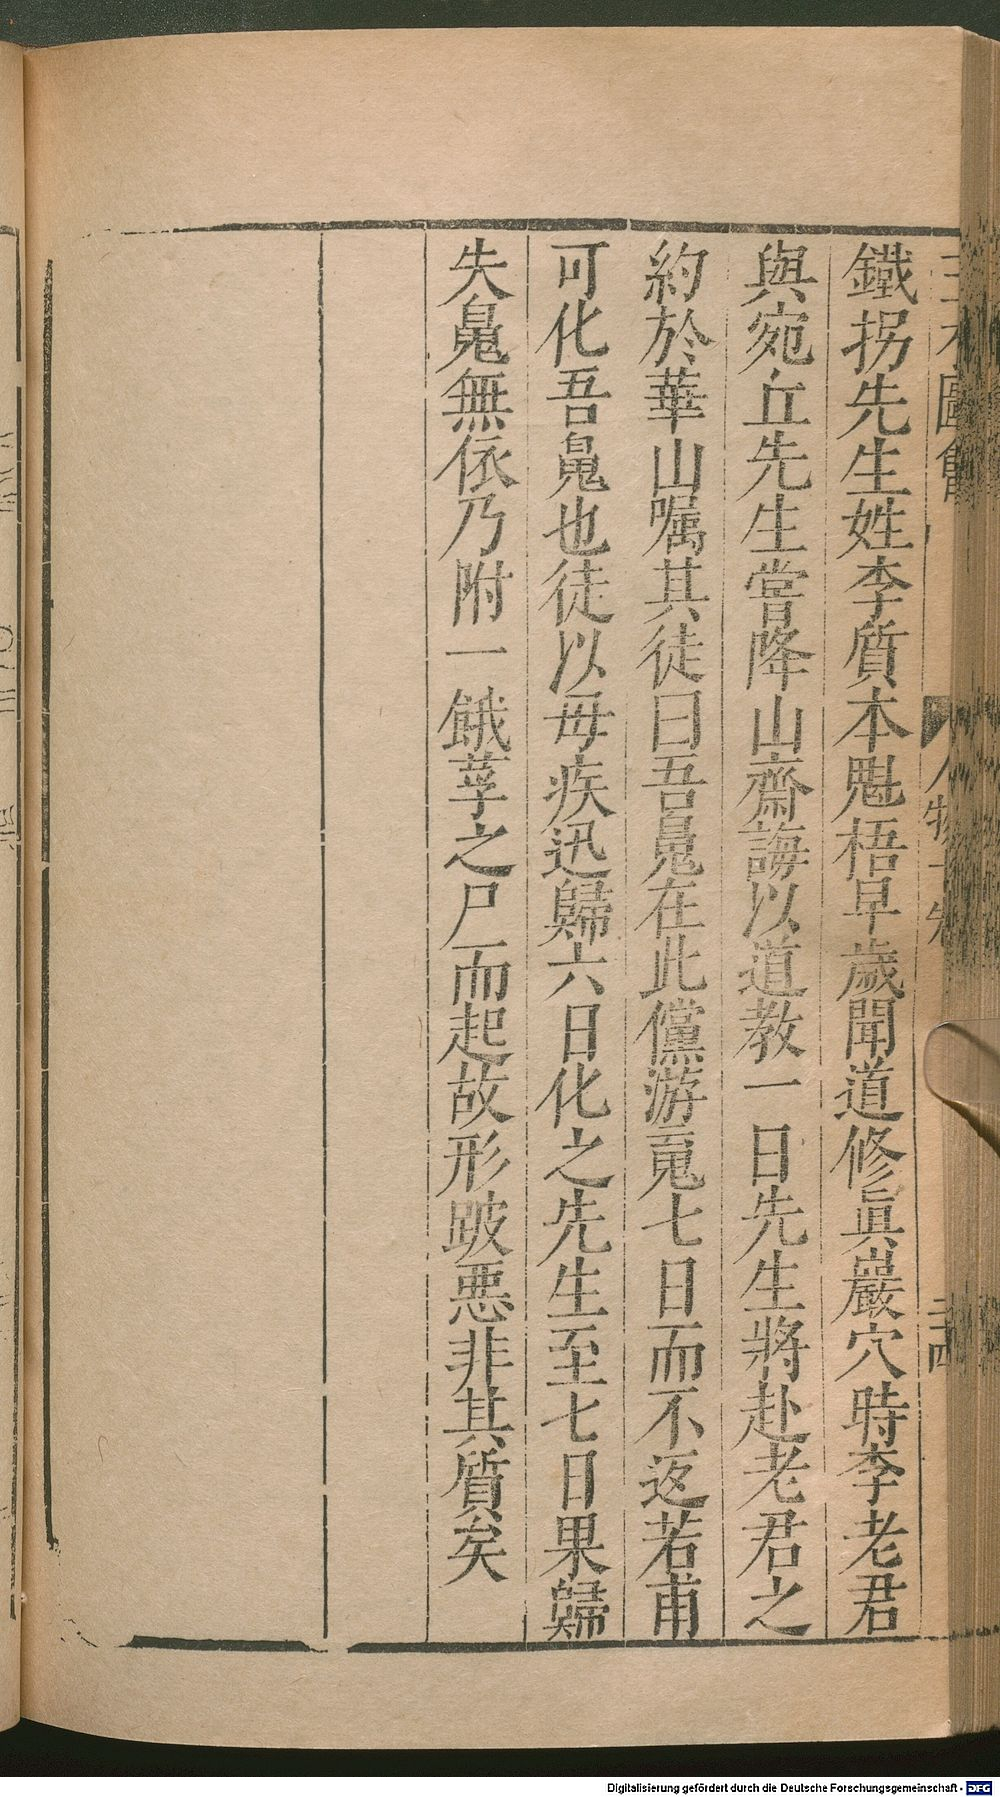 三才圖會 人物十卷 二十四
鐵拐先生姓李質本魁梧早歲聞道修眞巖穴時李老君
與宛丘先生嘗降山齋誨以道教一日先生將赴老君之
約於華山嘱其徒曰吾䰟在此儻游䰟七日而不返若甫
可化吾䰟也徒以母疾迅歸六日化之先生至七日果歸
失䰟無依乃附一餓莩之尸而起故形跛悪非其質矣
Digitalisierung gefördert durch die Deutsche Forschungsgemeinschaft - DFG